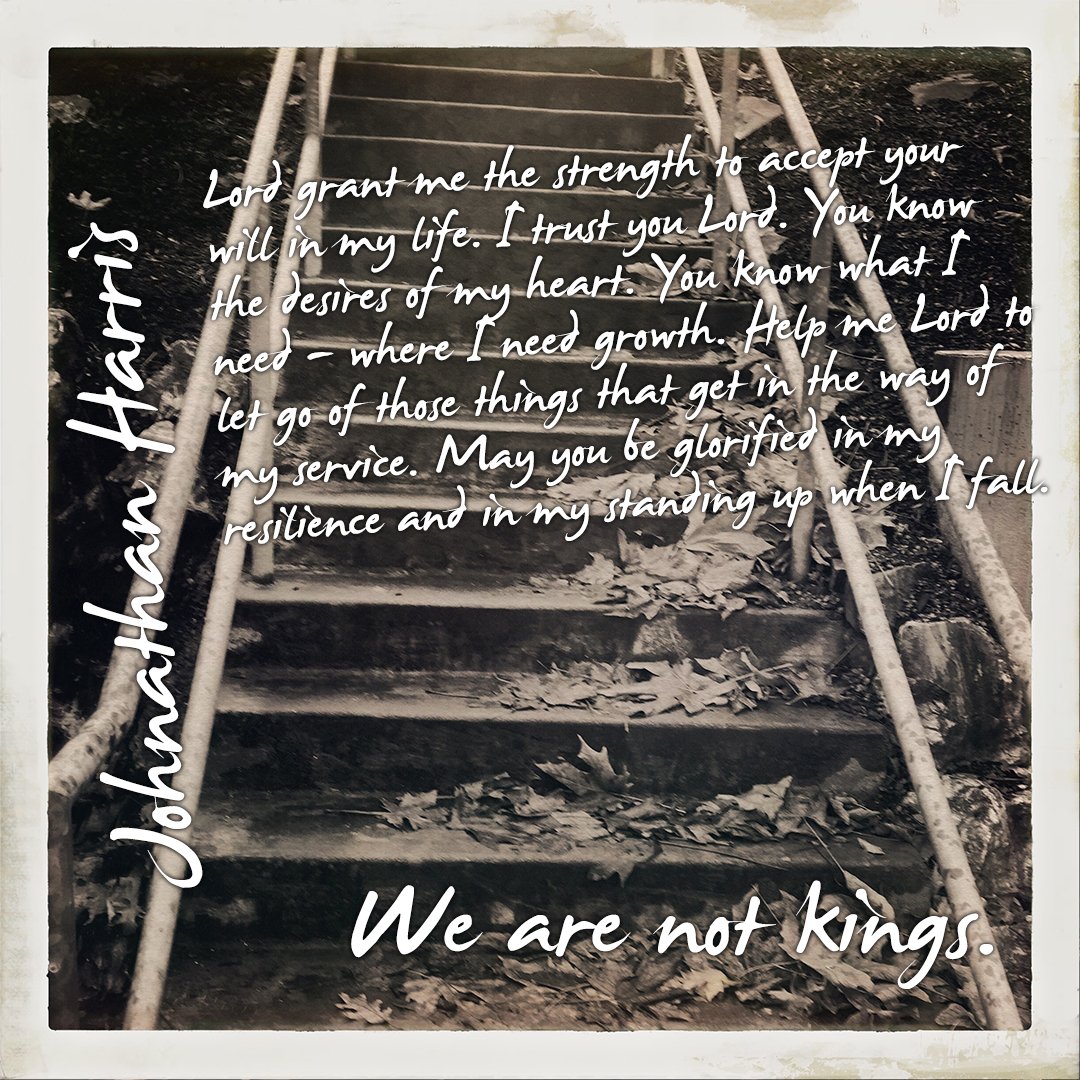 Johnathan Harris
Lord grant me the strength to accept your
will in my life. I trust you Lord. You know
the desires of my heart. You know what I
need – where I need growth. Help me Lord to
let go of those things that get in the way of
my service. May you be glorified in my
resilience and in my standing up when I fall.
We are not kings.